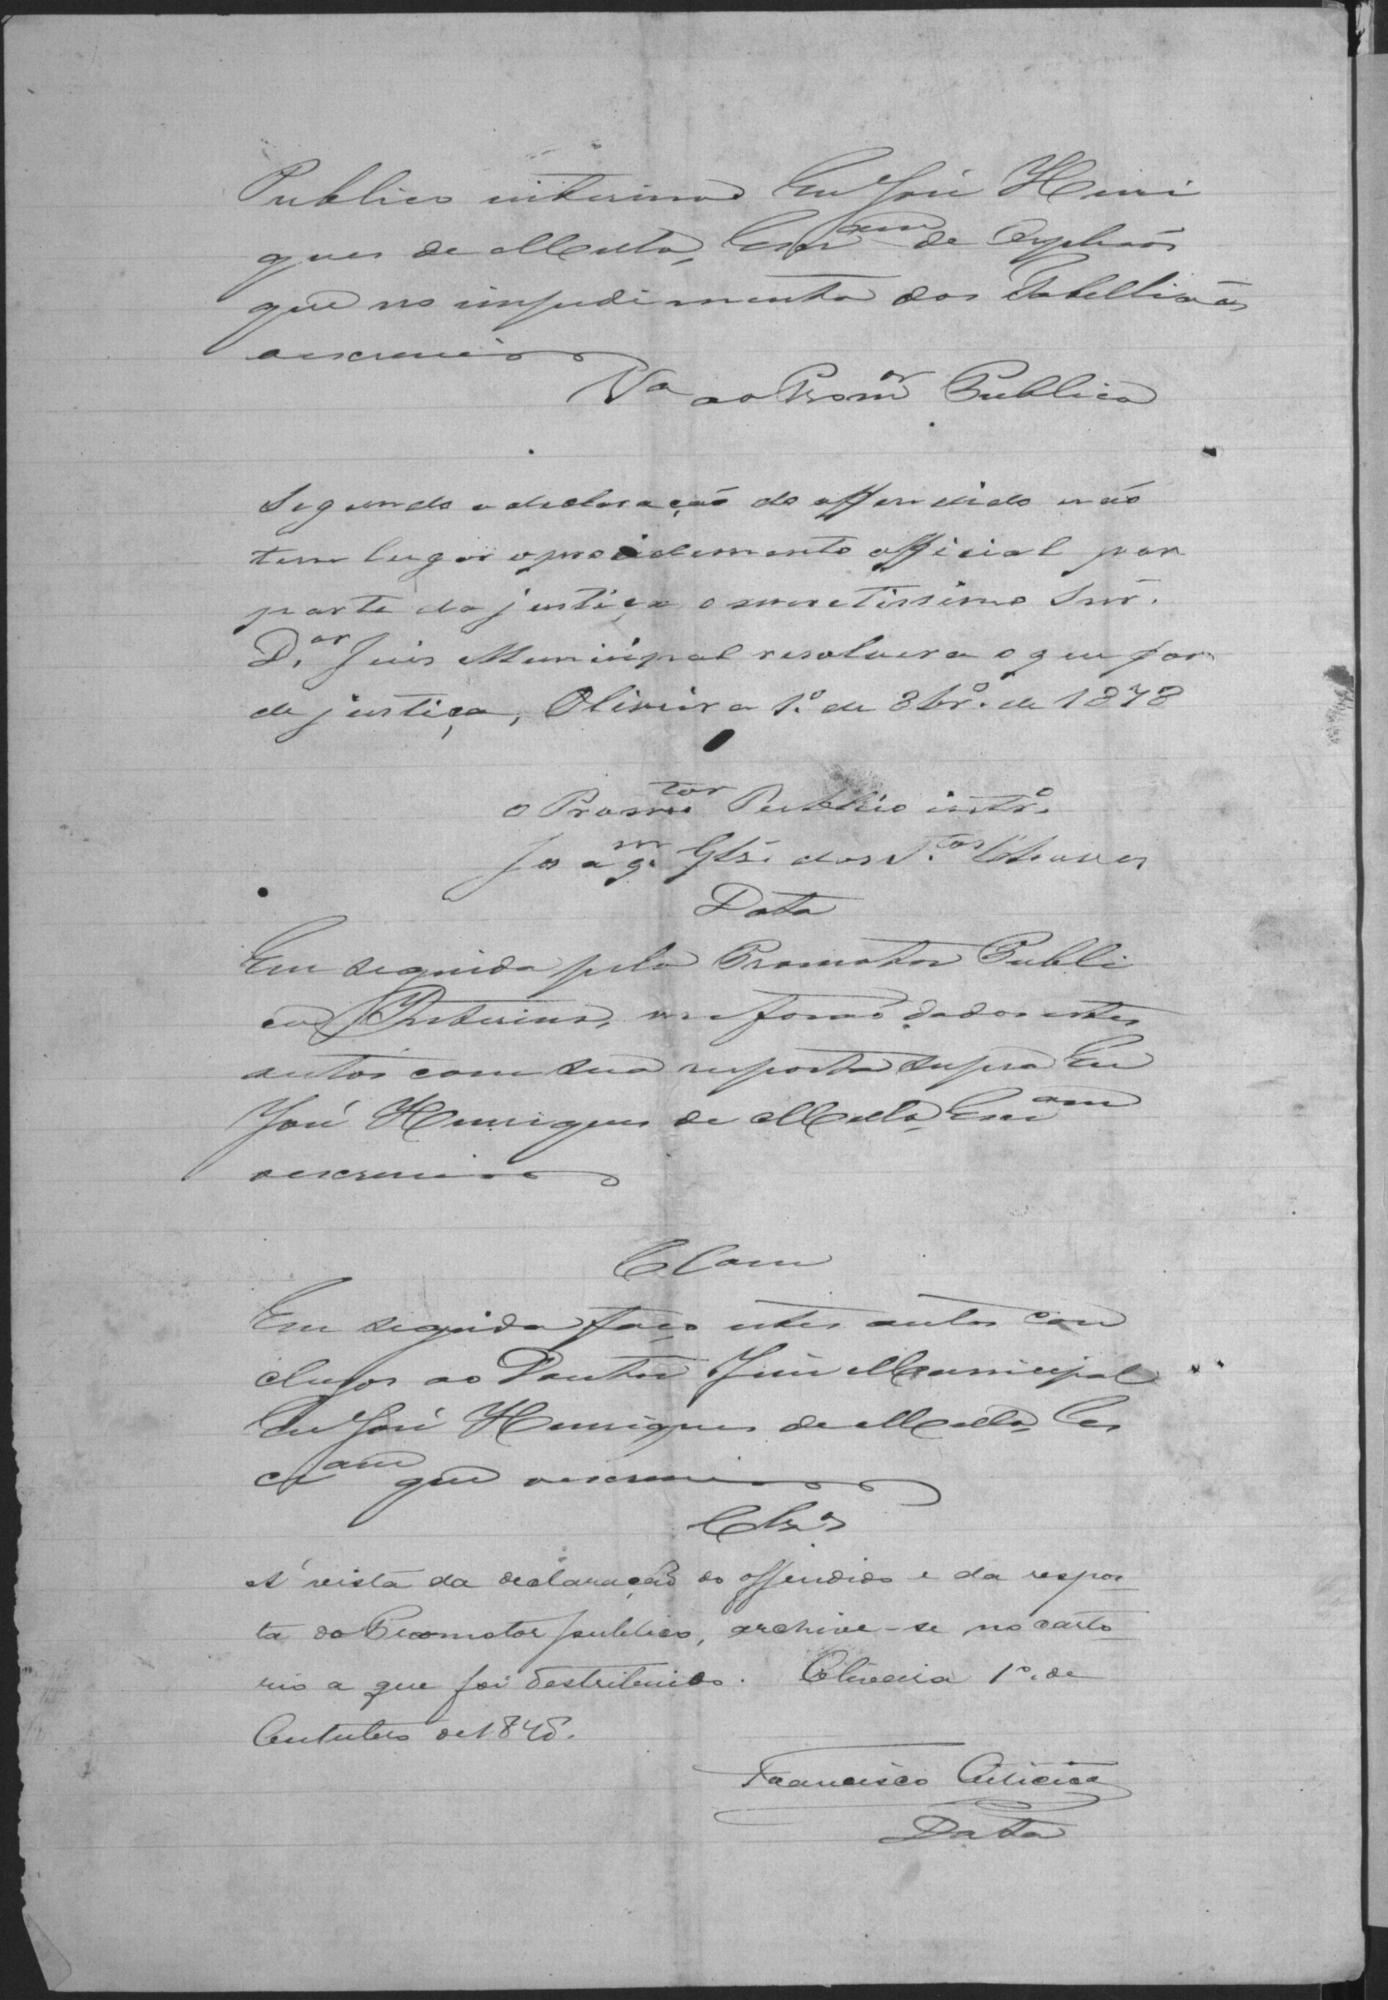 Publico interino Eu José Henri
ques de Mello, Escr.am de Orphaõs
que no impedimento dos Tabelliães
o escrevi
V.a ao Prom.or Publico
Segundo a declaração do offendido não
tem lugar o procidemento official por
parte da justiça o meretissimo Snr.
D.or Juis Municipal resolvera o que for
de justiça, Oliveira 1.º de 8br.º de 1878
O Promotor Publico intr.º
Joaq.m Glz. dos S.tos Chaves
Data
Em seguida pelo Promotor Publi
co Interino, me foraõ dados estes
autos com sua resposta supra Eu
José Henriques de Mello, Escr.am
o escrevi
Clsam
Em seguida faço estes autos con
clusos ao Doutor Juis Municipal
Eu José Henriques de Mello, Es
cr.am que o escrevi
Cls.os
A' vista da declaração do offendido e da respos-
ta do Promotor publico, archive-se no carto-
rio a que foi destribuido. Oliveira 1º. de
Outubro de 1878.
Francisco
Data